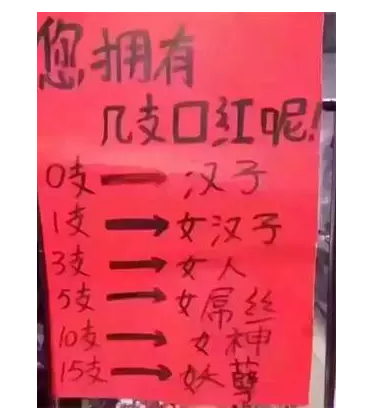 您拥有
几支口红呢!
0支→汉子
1支→女汉子
3支→女人
5支→女屌丝
10支→女神
15支→妖孽